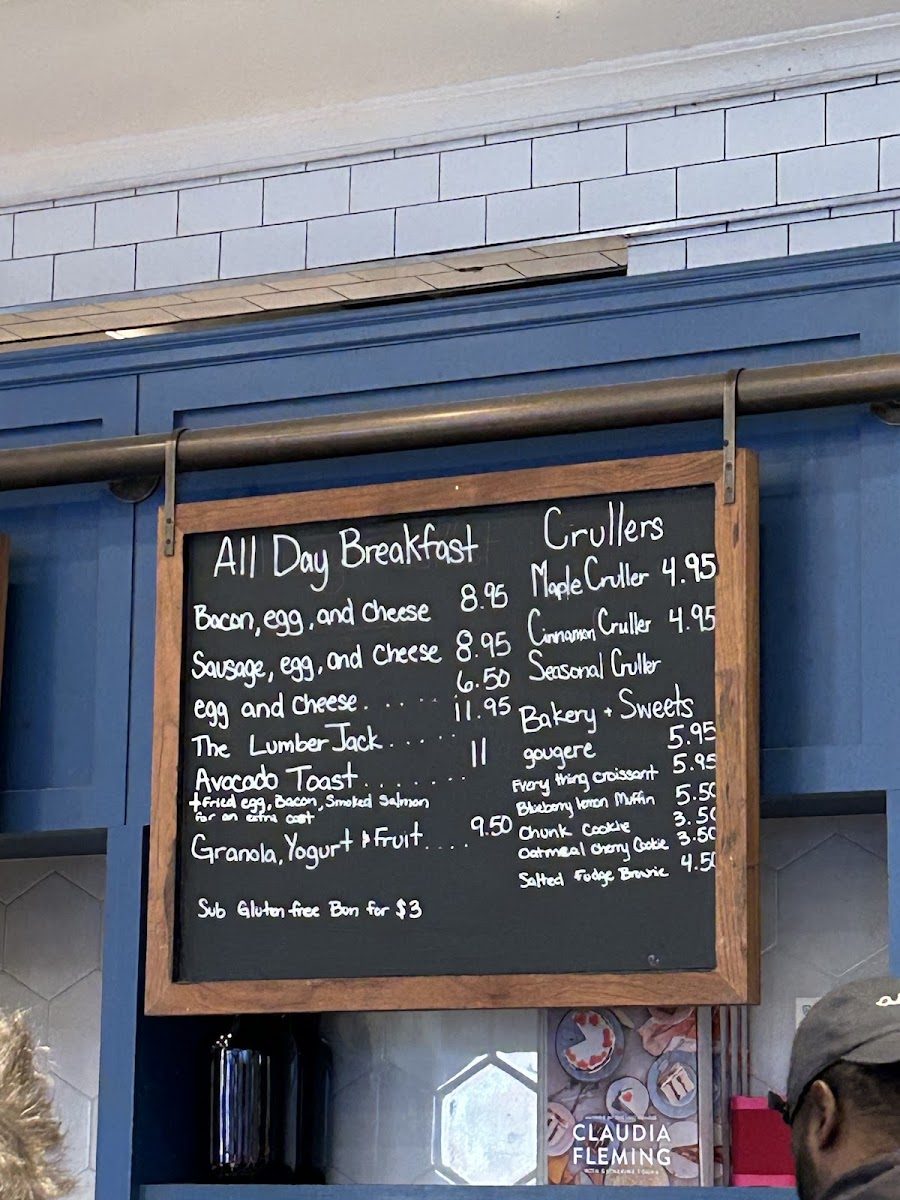 All Day Breakfast
Bacon, egg, and cheese 8.95
Sausage, egg, and cheese 8.95
egg and cheese..... 6.50
The LumberJack..... 11.95
Avocado Toast........ 11
+Fried egg, Bacon, Smoked Salmon
for an extra cost
Granola, Yogurt + Fruit.... 9.50
Sub Gluten-free Bun for $3
Crullers
Maple Cruller 4.95
Cinnamon Cruller 4.95
Seasonal Cruller
Bakery + Sweets
gougere 5.95
Every thing croissant 5.95
Blueberry lemon Muffin 5.50
Chunk Cookie 3.50
Oatmeal cherry Cookie 3.50
Salted Fudge Brownie 4.50
CLAUDIA
FLEMING